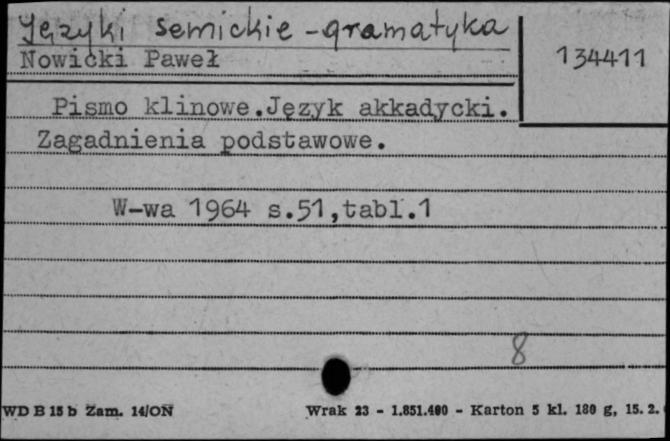 Języki semickie - gramatyka
Nowicki Paweł
134411
Pismo klinowe.Język akkadycki.
Zagadnienia podstawowe.
W-wa 1964 s.51,tabl.1
8
WD B 15 b Zam. 14/ON
Wrak 23 - 1.851.400 - Karton 5 kl. 180 g, 15. 2.